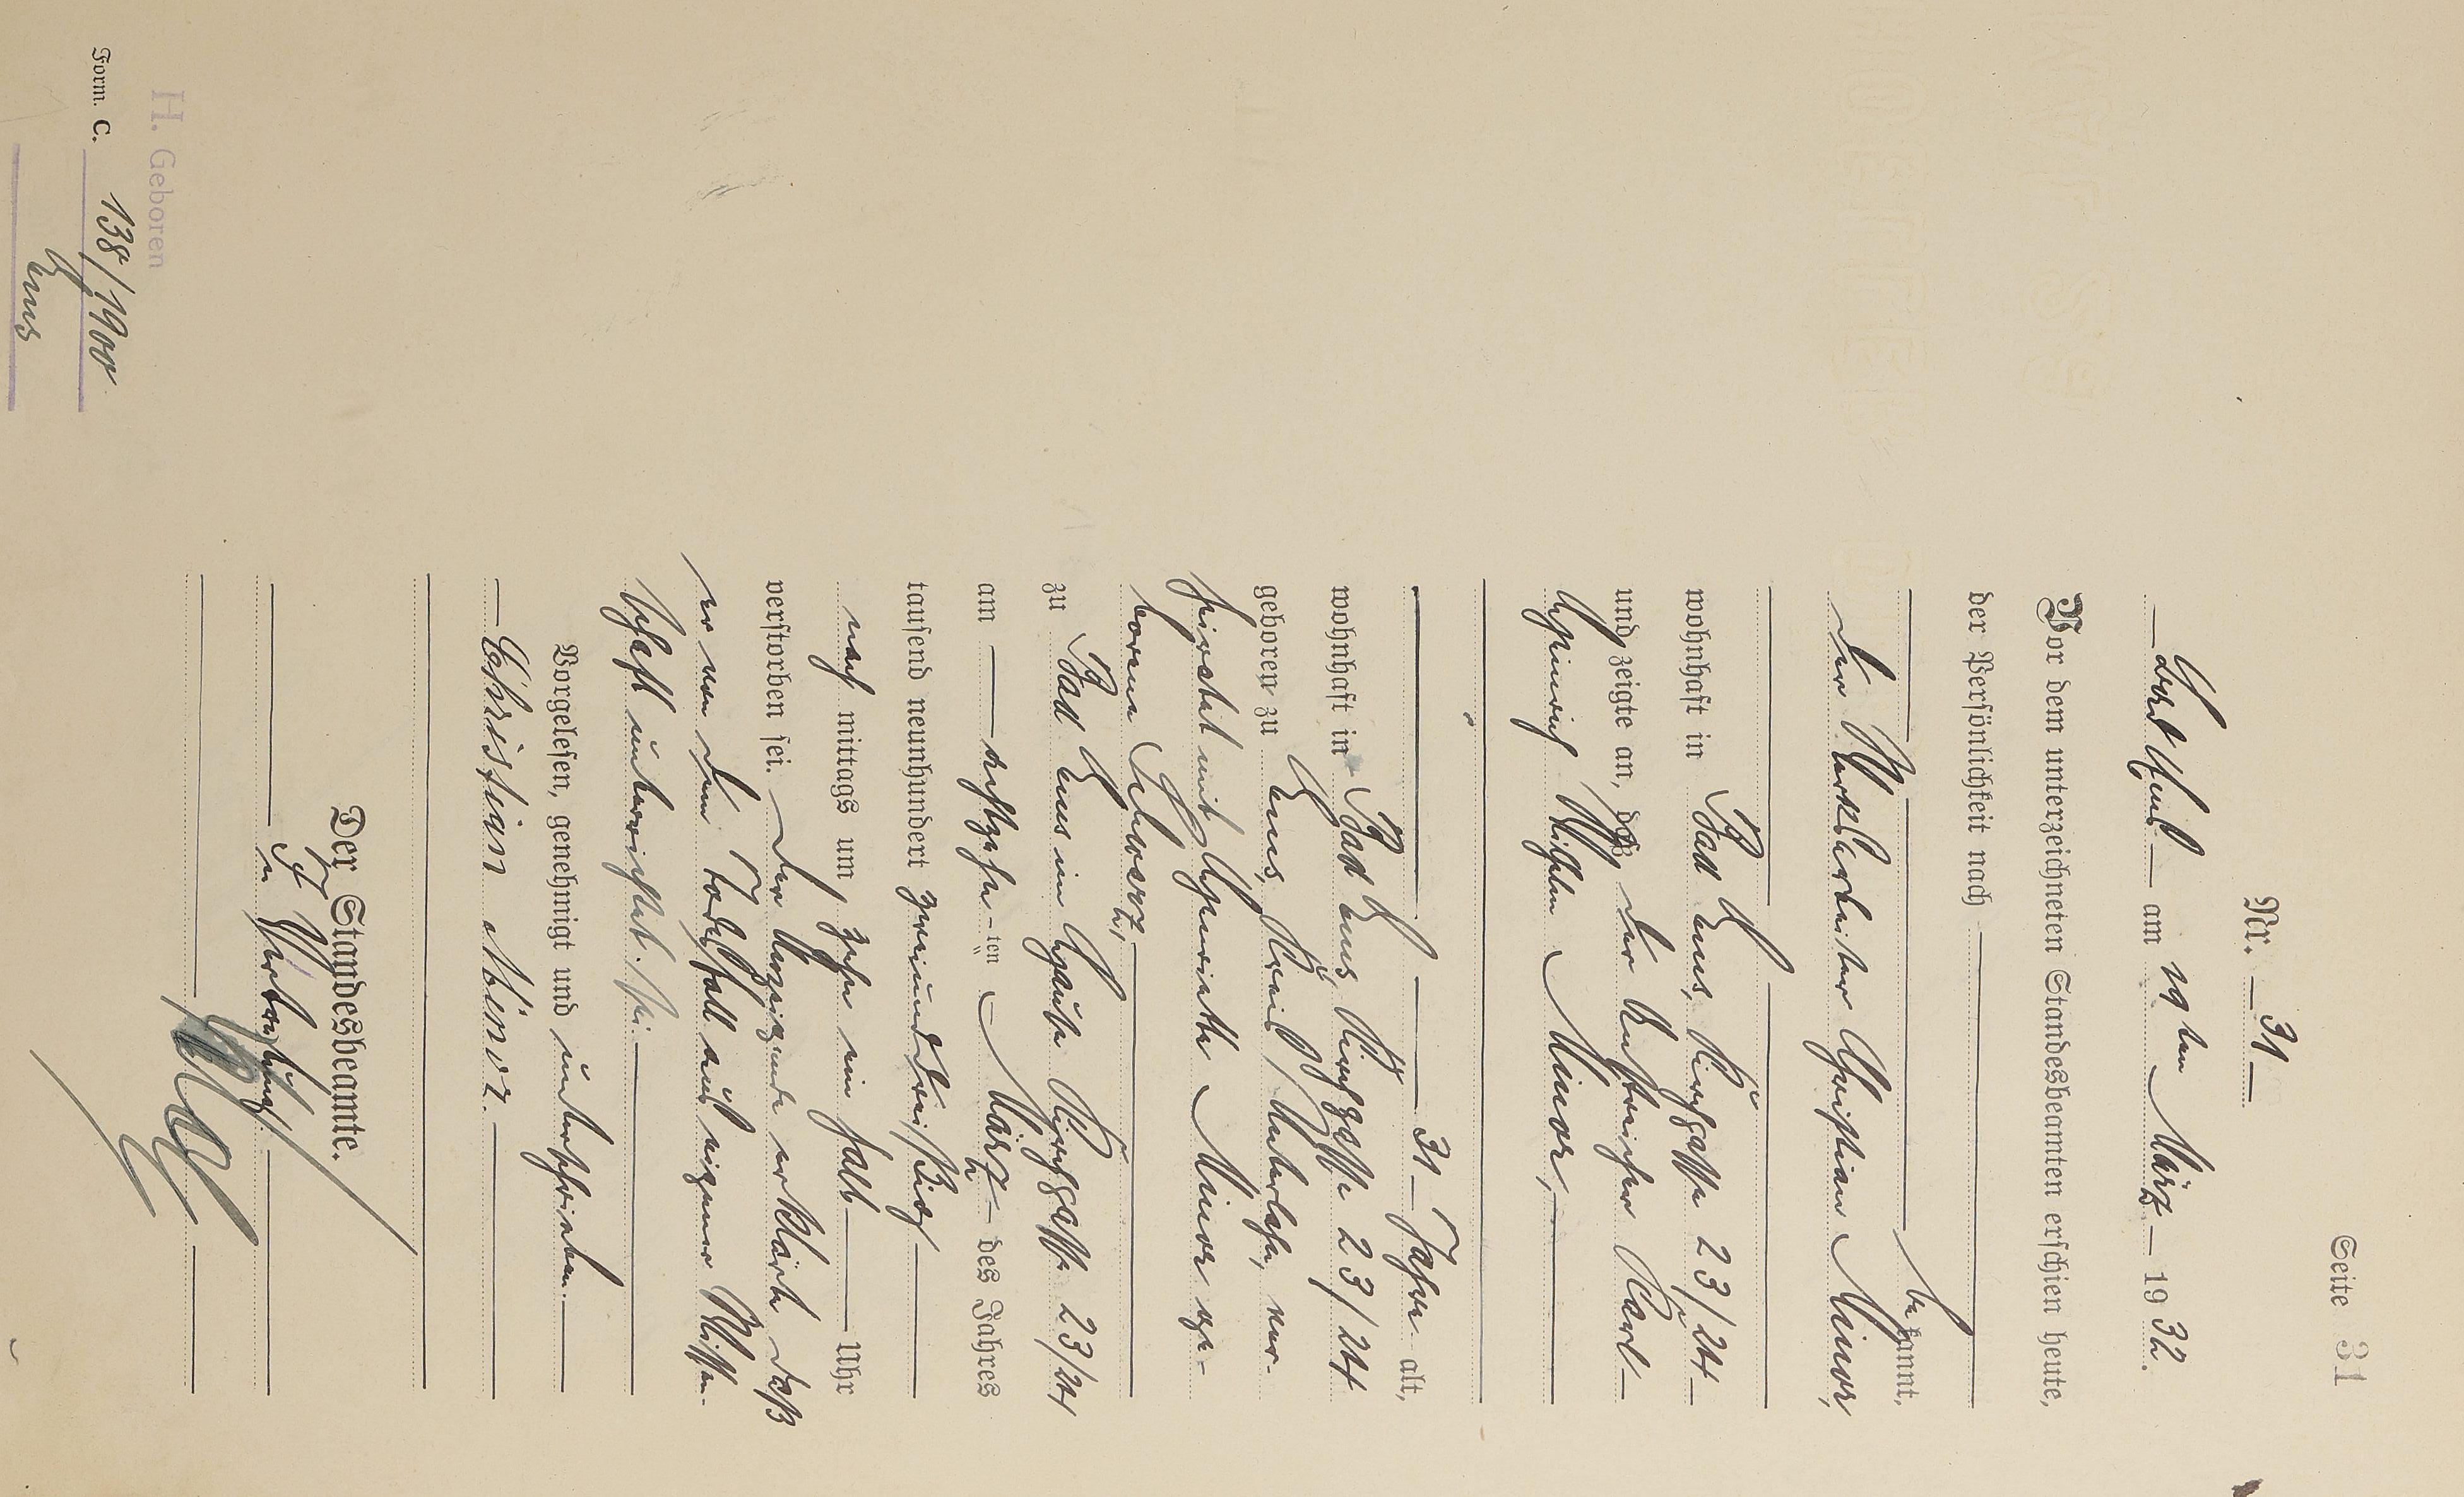 Seite 31
Nr. — 31 —
am 19 ten März — 19 32.
Vor dem unterzeichneten Standesbeamten erschien heute,
der Persönlichkeit nach
bekannt,
der Werksarbeiter Christian Minor,
wohnhaft in Bad Ems, Kirchgasse 23/24
und zeigte an, daß der Anstreicher Karl
Heinrich Wilhelm Minor,
31 Jahre alt,
wohnhaft in Bad Ems, Kirchgasse 23/24
geboren zu Ems, Kreis Unterlahn, ver-
heiratet mit Henriette Minor ge-
borene Schwarz,
zu Bad Ems im Hause Kirchgasse 23/24
am — achtzehn — ten März — des Jahres
tausend neunhundert zweiunddreißig
nach mittags um zehn ein halb Uhr
verstorben sei. Der Anzeigende erklärte daß
er von dem Todesfall aus eigener Wissen-
schaft unterrichtet sei.
Vorgelesen, genehmigt und unterschrieben.
Christian Minor.
Der Standesbeamte.
In Vertretung
H. Geboren
Form. C. 138/1900
Ems